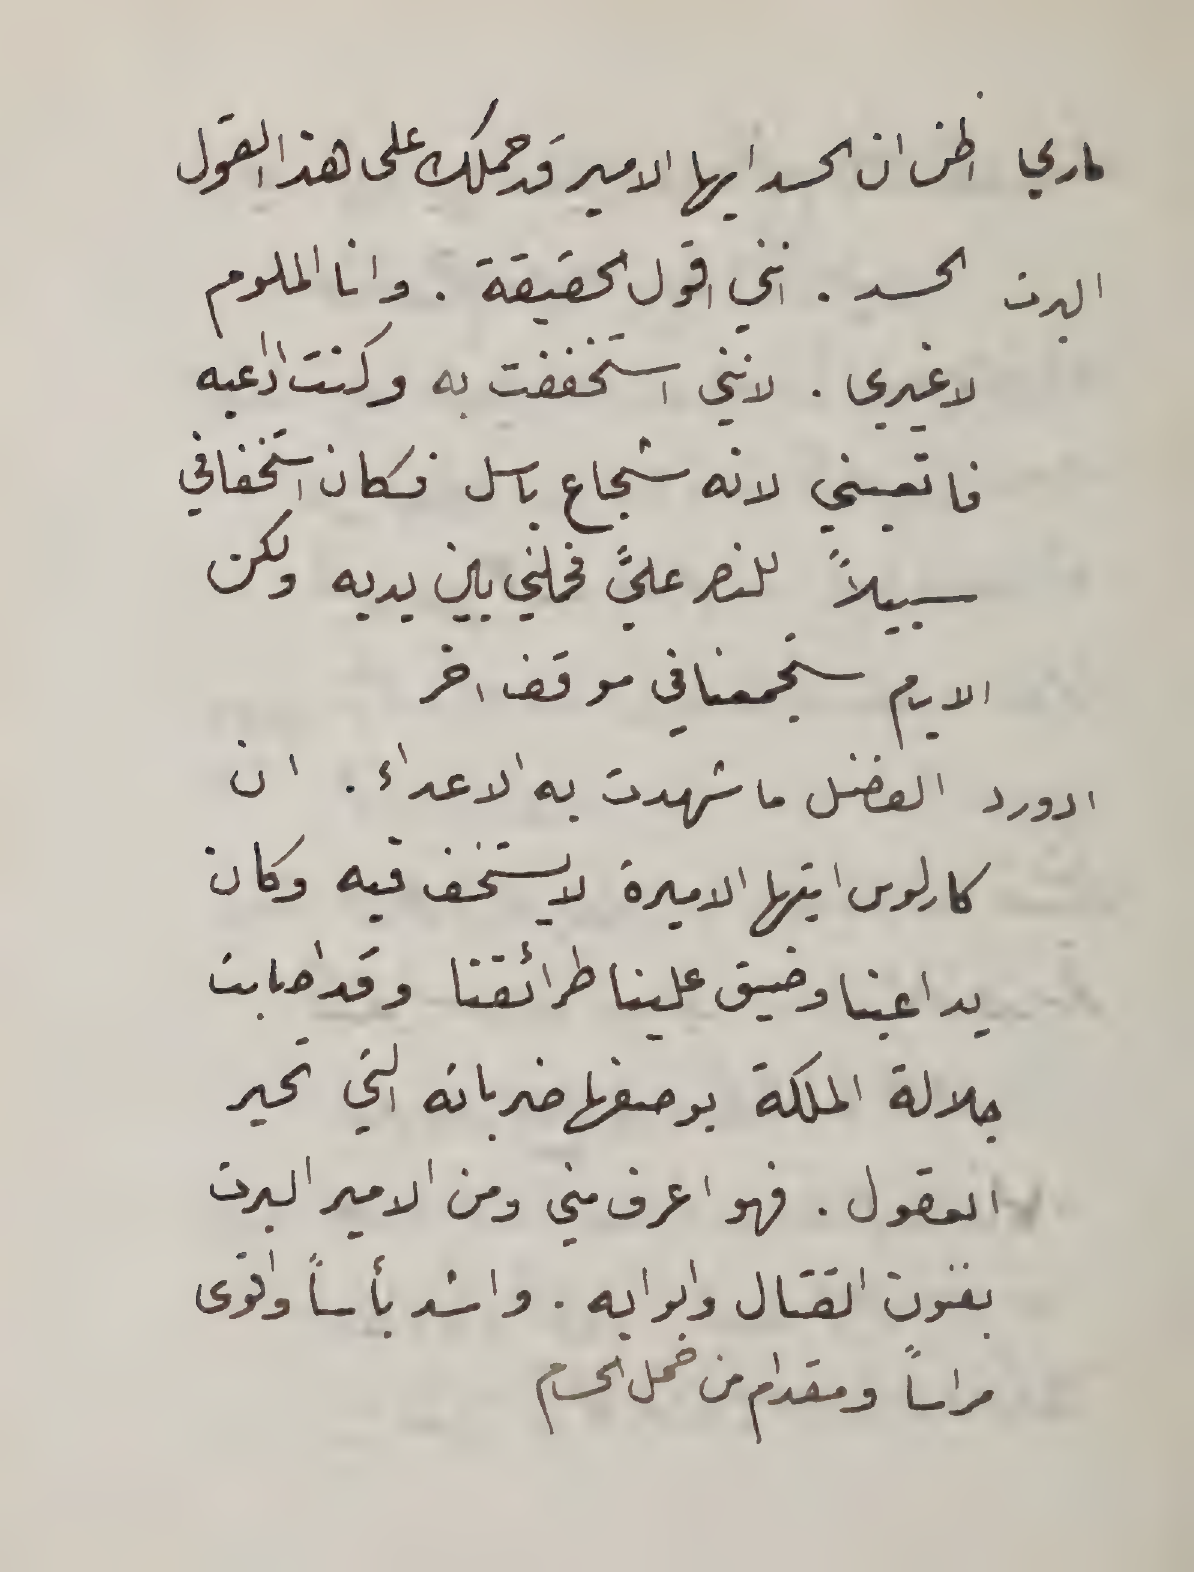 ماري اظن ان الحسد ايها الامير قد حملك على هذا القول
البرت الحسد . انني اقول الحقيقة . وانا الملوم
لا غيري . لانني استخففت به وكنت اداعبه
فاتعبني لانه شجاع باسل فكان استخفافي
سبيلاً للنصر عليَّ فحملني بين يديه ولكن
الايام ستجمعنا في موقف اخر
ادورد الفضل ما شهدت به الاعداء . ان
كارلوس ايتها الاميرة لا يستخف فيه وكان
يداعبنا وضيق علينا طرائقنا وقد اصابت
جلالة الملكة بوصفها ضرباته التي تحير
العقول . فهو اعرف مني ومن الامير البرت
بفنون القتال وابوابه . واشد بأساً واقوى
مراساً ومقدام من حمل الحسام